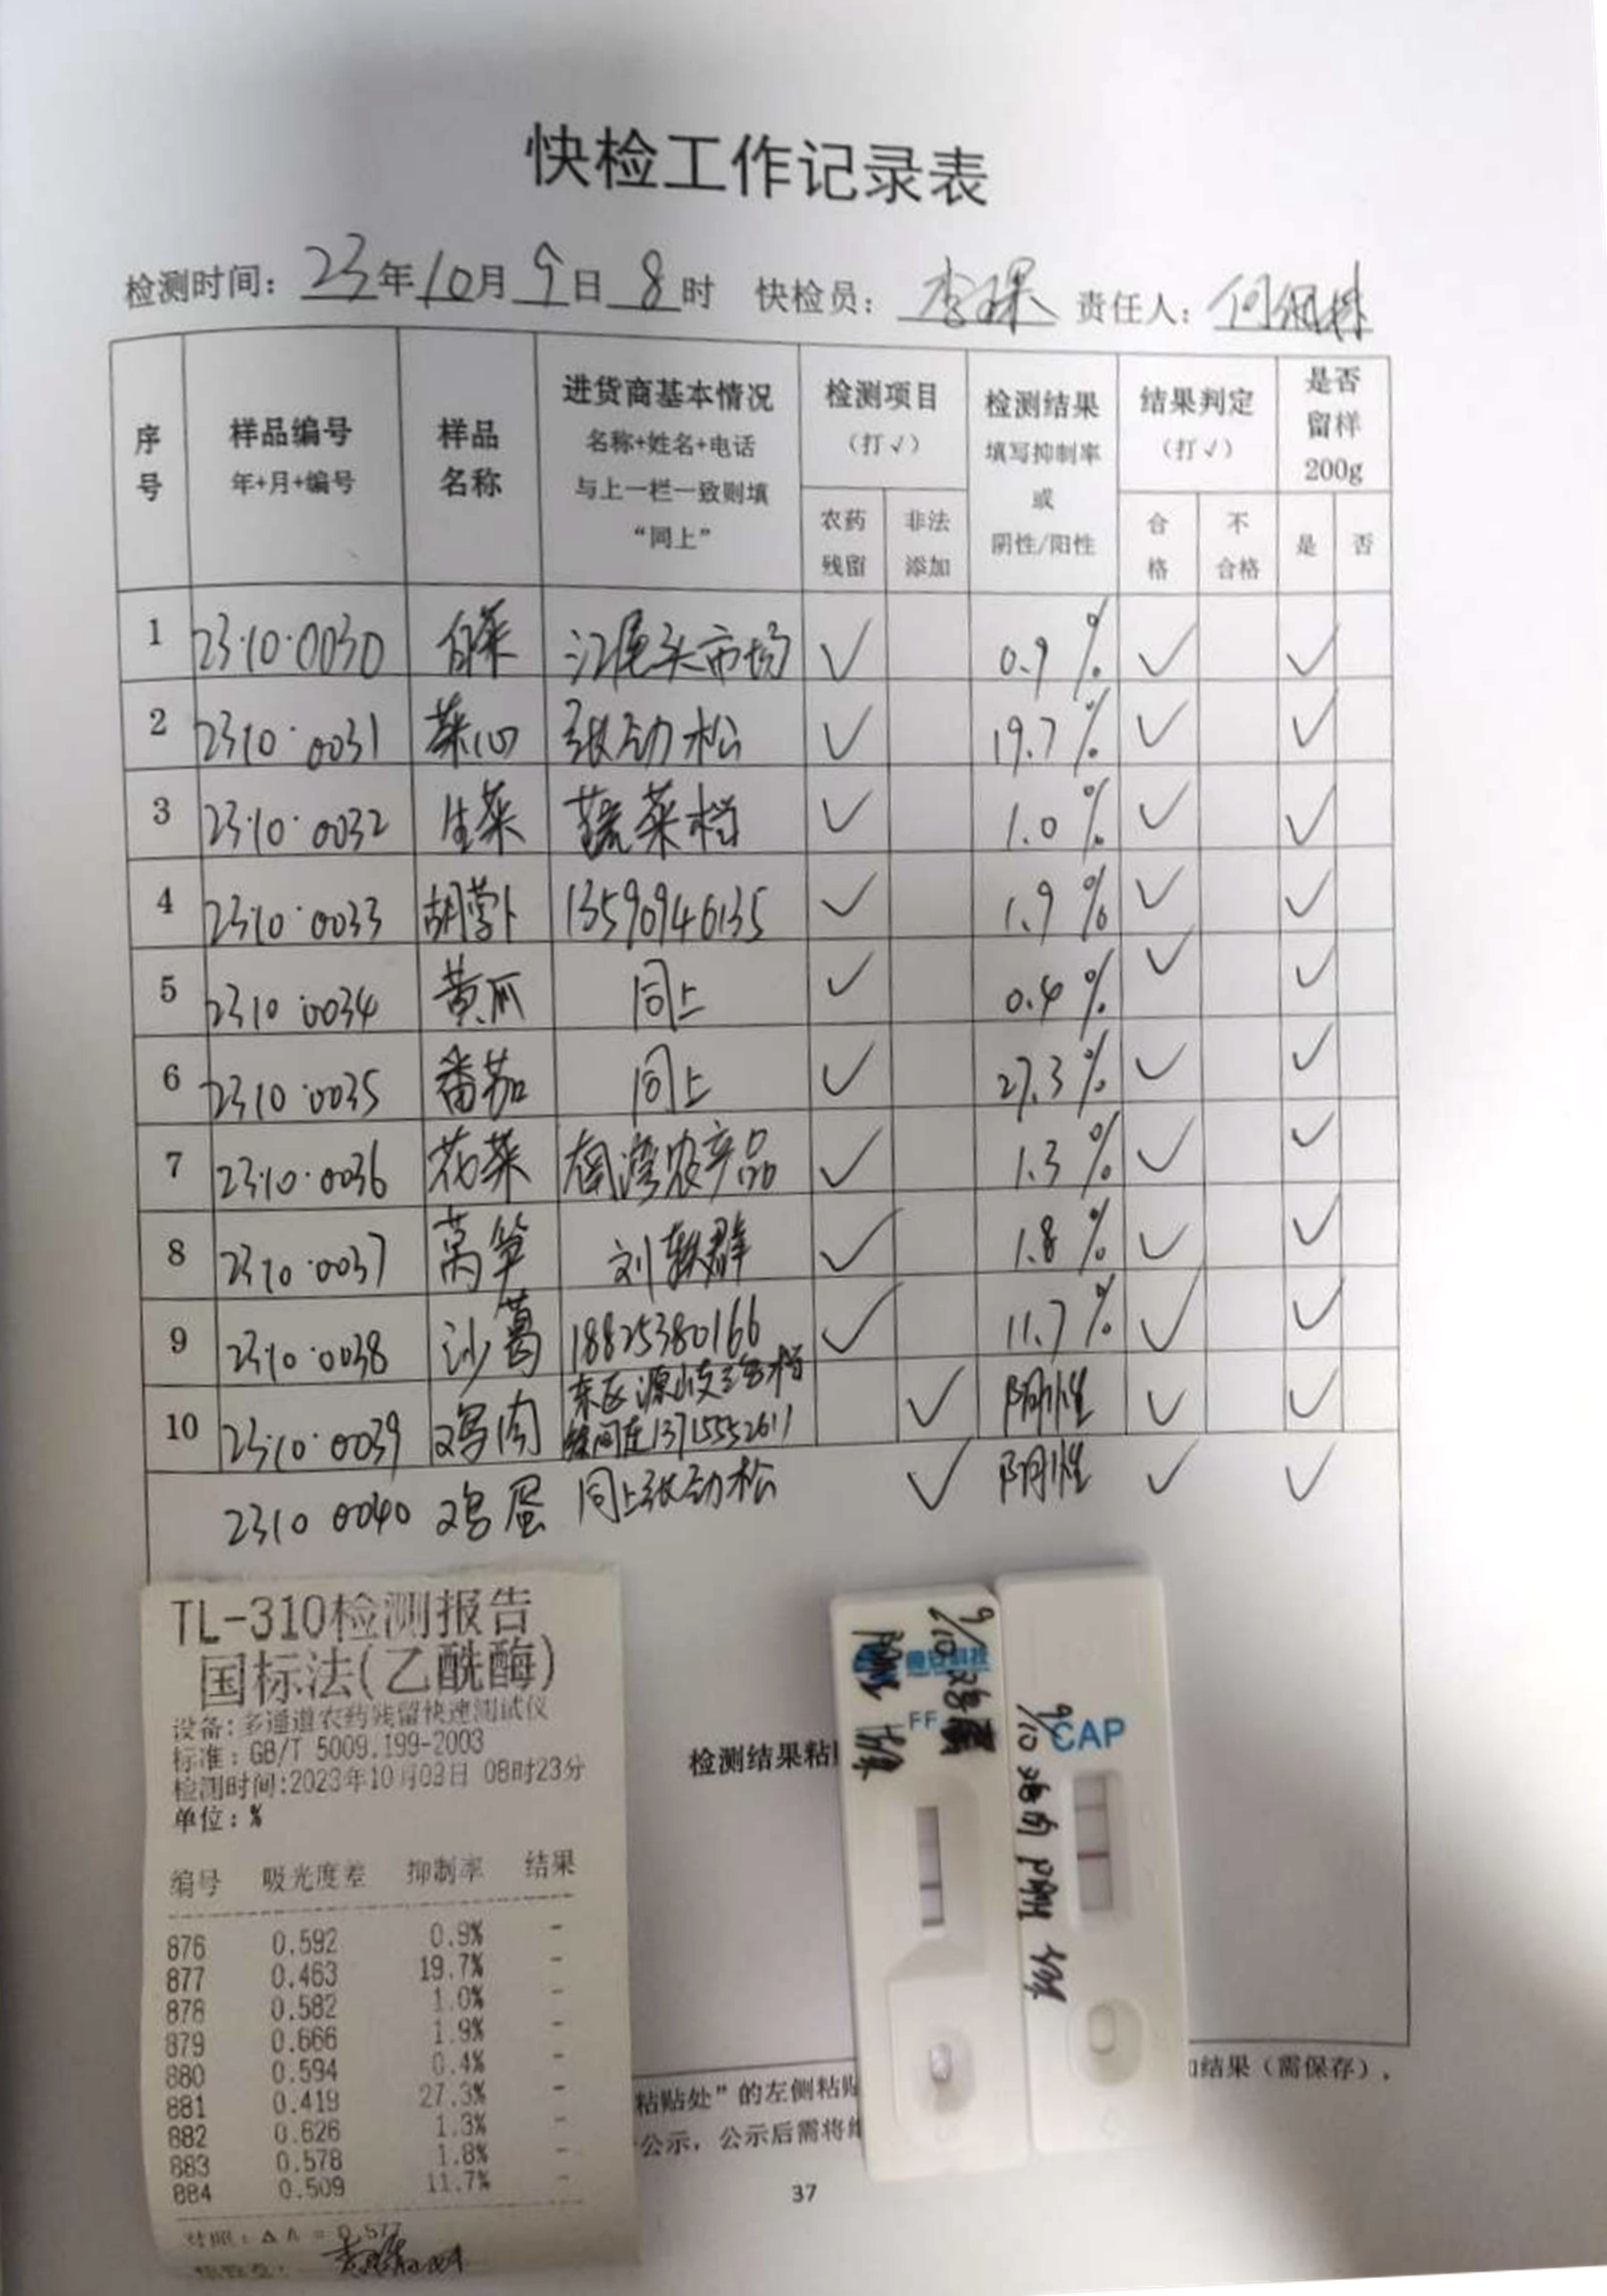 快检工作记录表
检测时间：23年10月9日8时 快检员： 责任人：
序号 样品编号 年+月+编号 样品名称 进货商基本情况 名称+姓名+电话 与上一栏一致则填“同上” 检测项目（打√） 农药残留 非法添加 检测结果 填写抑制率或阴性/阳性 结果判定（打√） 合格 不合格 是否留样200g 是 否
1 23·10·0030 白菜 江尾头市场 √ 0.9% √ √
2 2310·0031 菜心 张劲松 √ 19.7% √ √
3 23·10·0032 生菜 蔬菜档 √ 1.0% √ √
4 23·10·0033 胡萝卜 13590946135 √ 1.9% √ √
5 2310·0034 黄瓜 同上 √ 0.4% √ √
6 2310·0035 番茄 同上 √ 27.3% √ √
7 23·10·0036 花菜 南湾农产品 √ 1.3% √ √
8 2310·0037 莴笋 刘轶群 √ 1.8% √ √
9 23·10·0038 沙葛 18825380166 √ 11.7% √ √
10 23·10·0039 鸡肉 东区源岐 档 13715552611 √ 阴性 √ √
2310 0040 鸡蛋 同上张劲松 √ 阴性 √ √
TL-310检测报告
国标法(乙酰酶)
设备:多通道农药残留快速测试仪
标准：GB/T 5009.199-2003
检测时间:2023年10月09日 08时23分
单位：%
编号 吸光度差 抑制率 结果
876 0.592 0.9% -
877 0.463 19.7% -
878 0.582 1.0% -
879 0.666 1.9% -
880 0.594 0.4% -
881 0.419 27.3% -
882 0.626 1.3% -
883 0.578 1.8% -
884 0.509 11.7% -
对照：ΔA = 0.577
检测结果粘贴
9/10 鸡蛋
FF
CAP
9/10 鸡肉 阴性
粘贴处”的左侧粘贴
结果（需保存），
公示，公示后需将
37